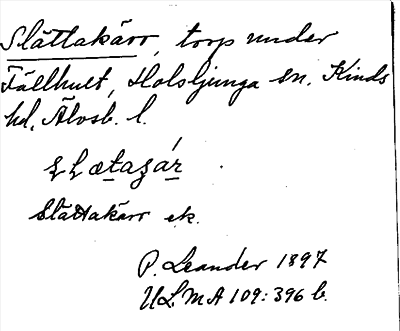 Slättakärr, torp under
Fällhult, Holsljunga sn. Kinds
hd, Älvsb. l.
Slättakärr ek.
P. Leander 1897
ULMA 109:396 b.